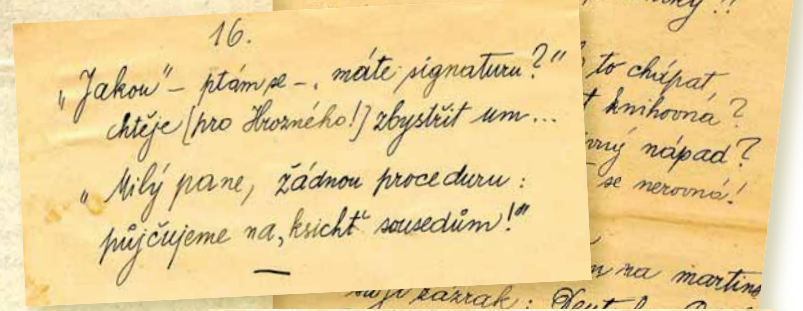 16.
„Jakou" – ptám se –, „máte signaturu?"
chtěje [pro Hrozného!] zbystřit um...
„Milý pane, žádnou proceduru:
půjčujeme na „ksicht" sousedům!"
to chápat,
knihovná?
nápad?
se nerovná!
na martins
zázrak: